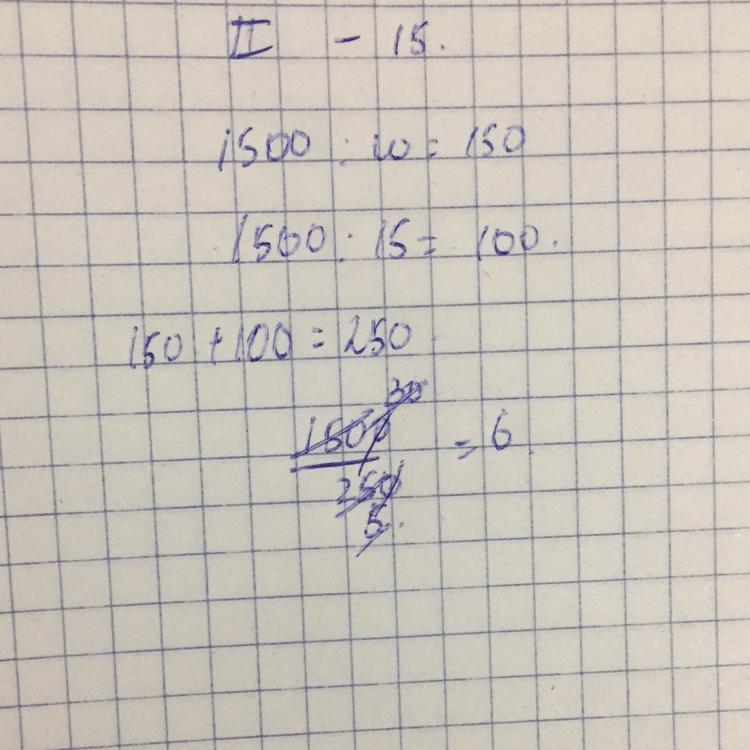 II - 15.
1500 : 10 = 150
1500 : 15 = 100.
150 + 100 = 250
30
1500 = 6
250
5.